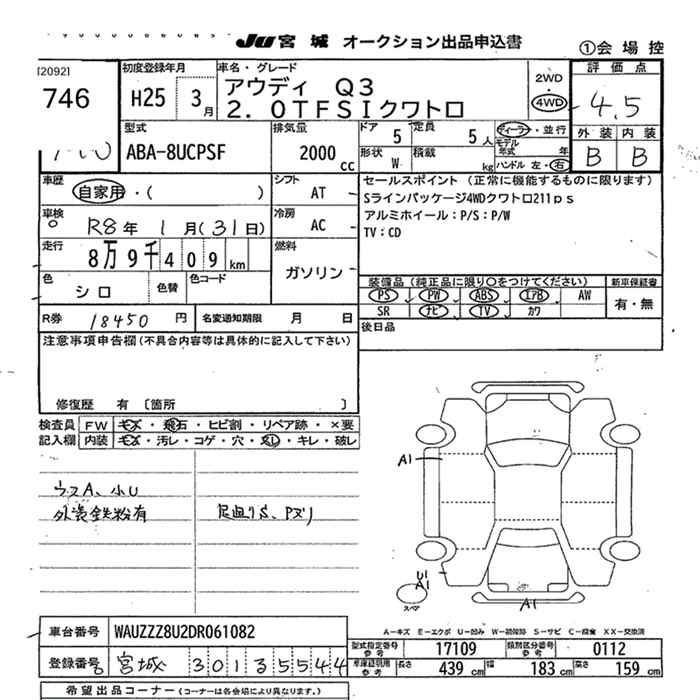 Ju 宮城 オークション出品申込書
①会場控
[2092]
746
初度登録年月
H25 3月
車名・グレード
アウディ Q3
2.0TFSIクワトロ
2WD
・
4WD
評価点
4.5
外装 内装
B B
型式
ABA-8UCPSF
排気量
2000cc
ドア 5 定員 5人
形状 W 積載 kg
ディーラー・並行
モデル年式 年
ハンドル 左・右
車歴
自家用・( )
シフト
AT
車検
R8年 1月(31日)
冷房
AC
走行
8万9千409km
燃料
ガソリン
色
シロ
色替
色コード
セールスポイント(正常に機能するものに限ります)
Sラインパッケージ4WDクワトロ211ps
アルミホイール:P/S:P/W
TV:CD
装備品(純正品に限り○をつけてください)
新車保証書
PS PW ABS エアB AW
SR ナビ TV カワ
有・無
R券 18450円
名変通知期限 月 日
後日品
注意事項申告欄(不具合内容等は具体的に記入して下さい)
修復歴 有〔箇所 〕
検査員記入欄
FW キズ・飛石・ヒビ割・リペア跡・×要
内装 キズ・汚レ・コゲ・穴・スレ・キレ・破レ
ウスA、小U
外装鉄粉有
足廻りS、Pズリ
A1
U1
A1
スペア
A1
A-キズ E-エクボ U-凹み W-補修跡 S-サビ C-腐食 XX-交換済
車台番号 WAUZZZ8U2DR061082
登録番号 宮城 301 ろ 5544
型式指定番号 参考 17109
類別区分番号 参考 0112
車庫証明用 参考 長さ 439cm 幅 183cm 高さ 159cm
希望出品コーナー(コーナーは各会場により異なります。)